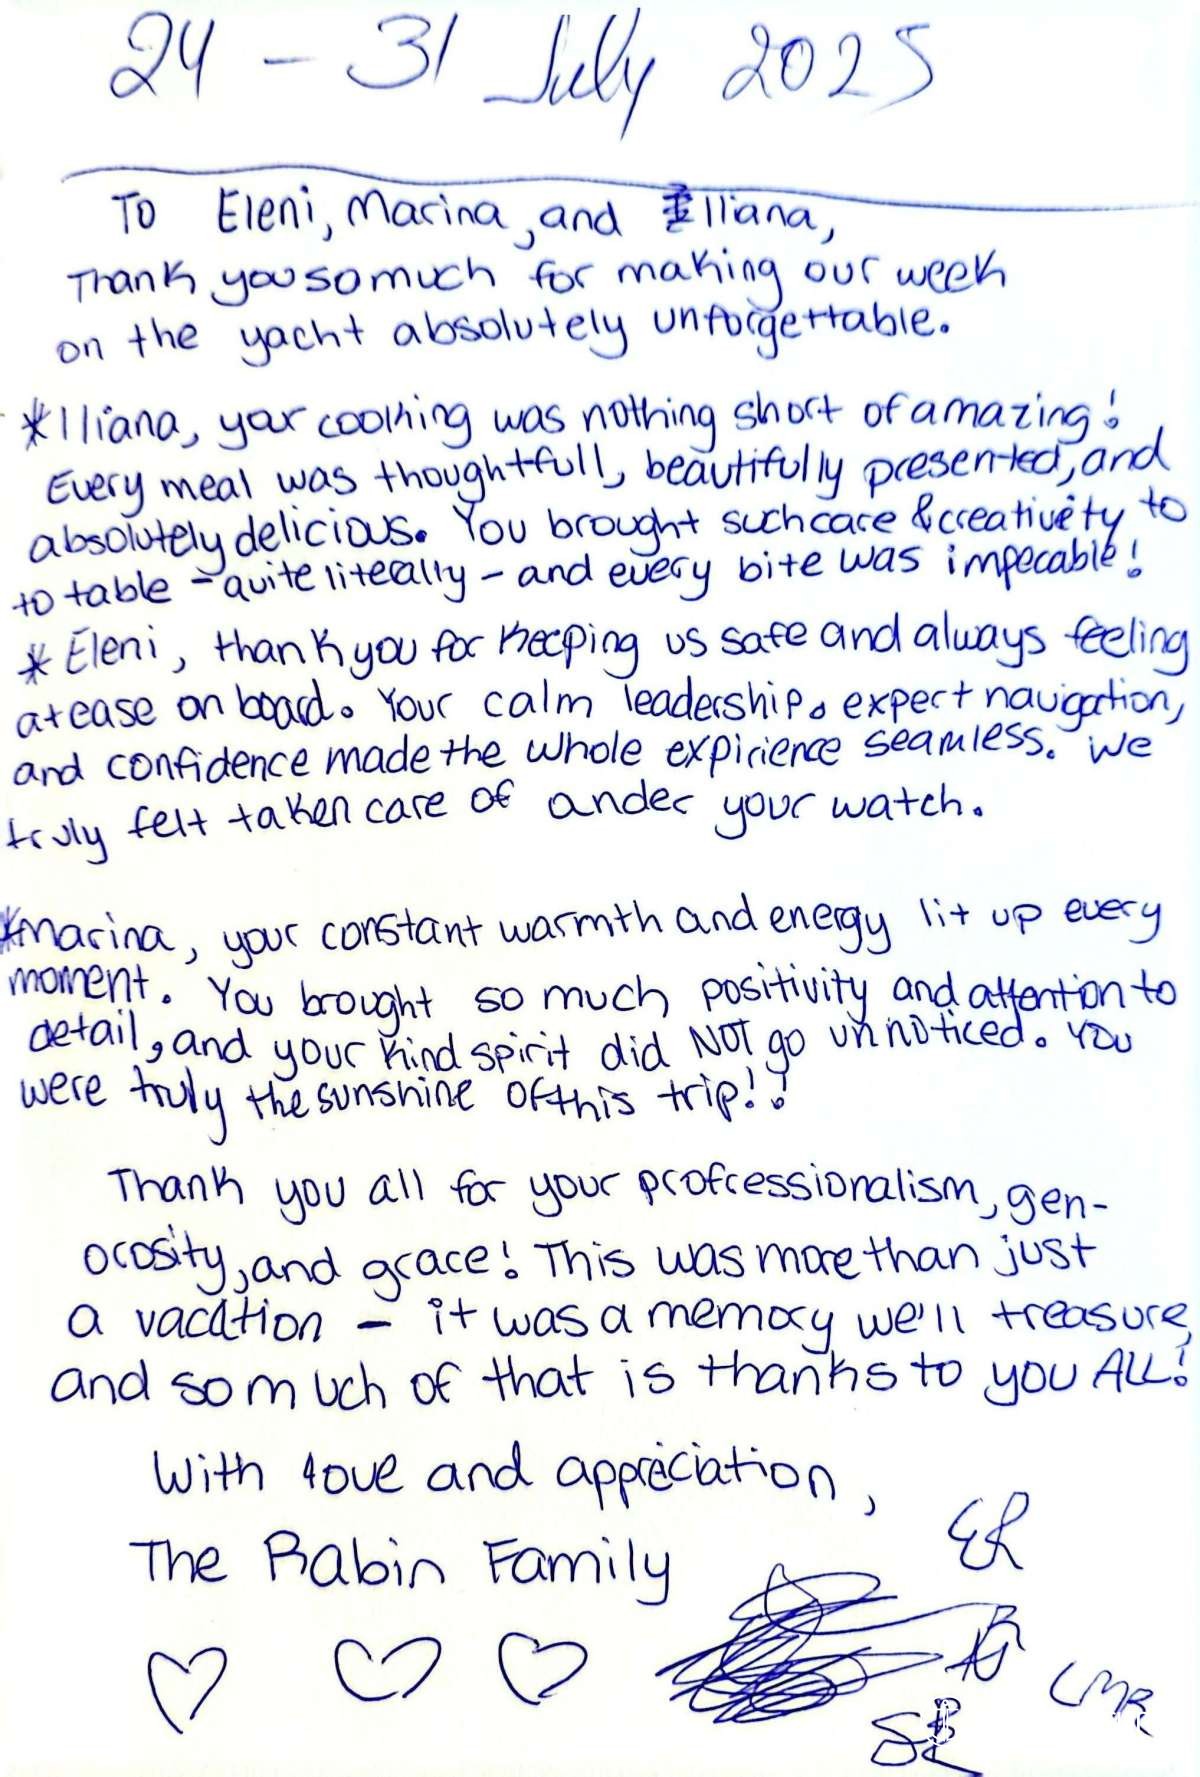 24 - 31 July 2025
To Eleni, Marina, and Iliana,
Thank you so much for making our week
on the yacht absolutely unforgettable.
*Iliana, your cooking was nothing short of amazing!
Every meal was thoughtfull, beautifully presented, and
absolutely delicious. You brought such care & creativety to
to table - quite literally - and every bite was impecable!
*Eleni, thank you for keeping us safe and always feeling
at ease on board. Your calm leadership. expert navigation,
and confidence made the whole expirience seamless. We
truly felt taken care of ander your watch.
*Marina, your constant warmth and energy lit up every
moment. You brought so much positivity and attention to
detail, and your kind spirit did NOT go unnoticed. You
were truly the sunshine of this trip!!
Thank you all for your profressionalism, gen-
orosity, and grace! This was more than just
a vacation - it was a memory we'll treasure,
and so much of that is thanks to you ALL!
With love and appreciation,
The Rabin Family
ER
LMR